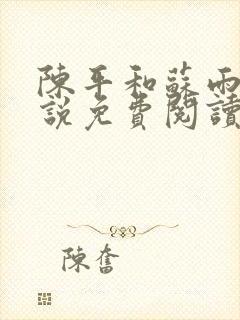 陳平和蘇雨
說免費閱讀
陳奮